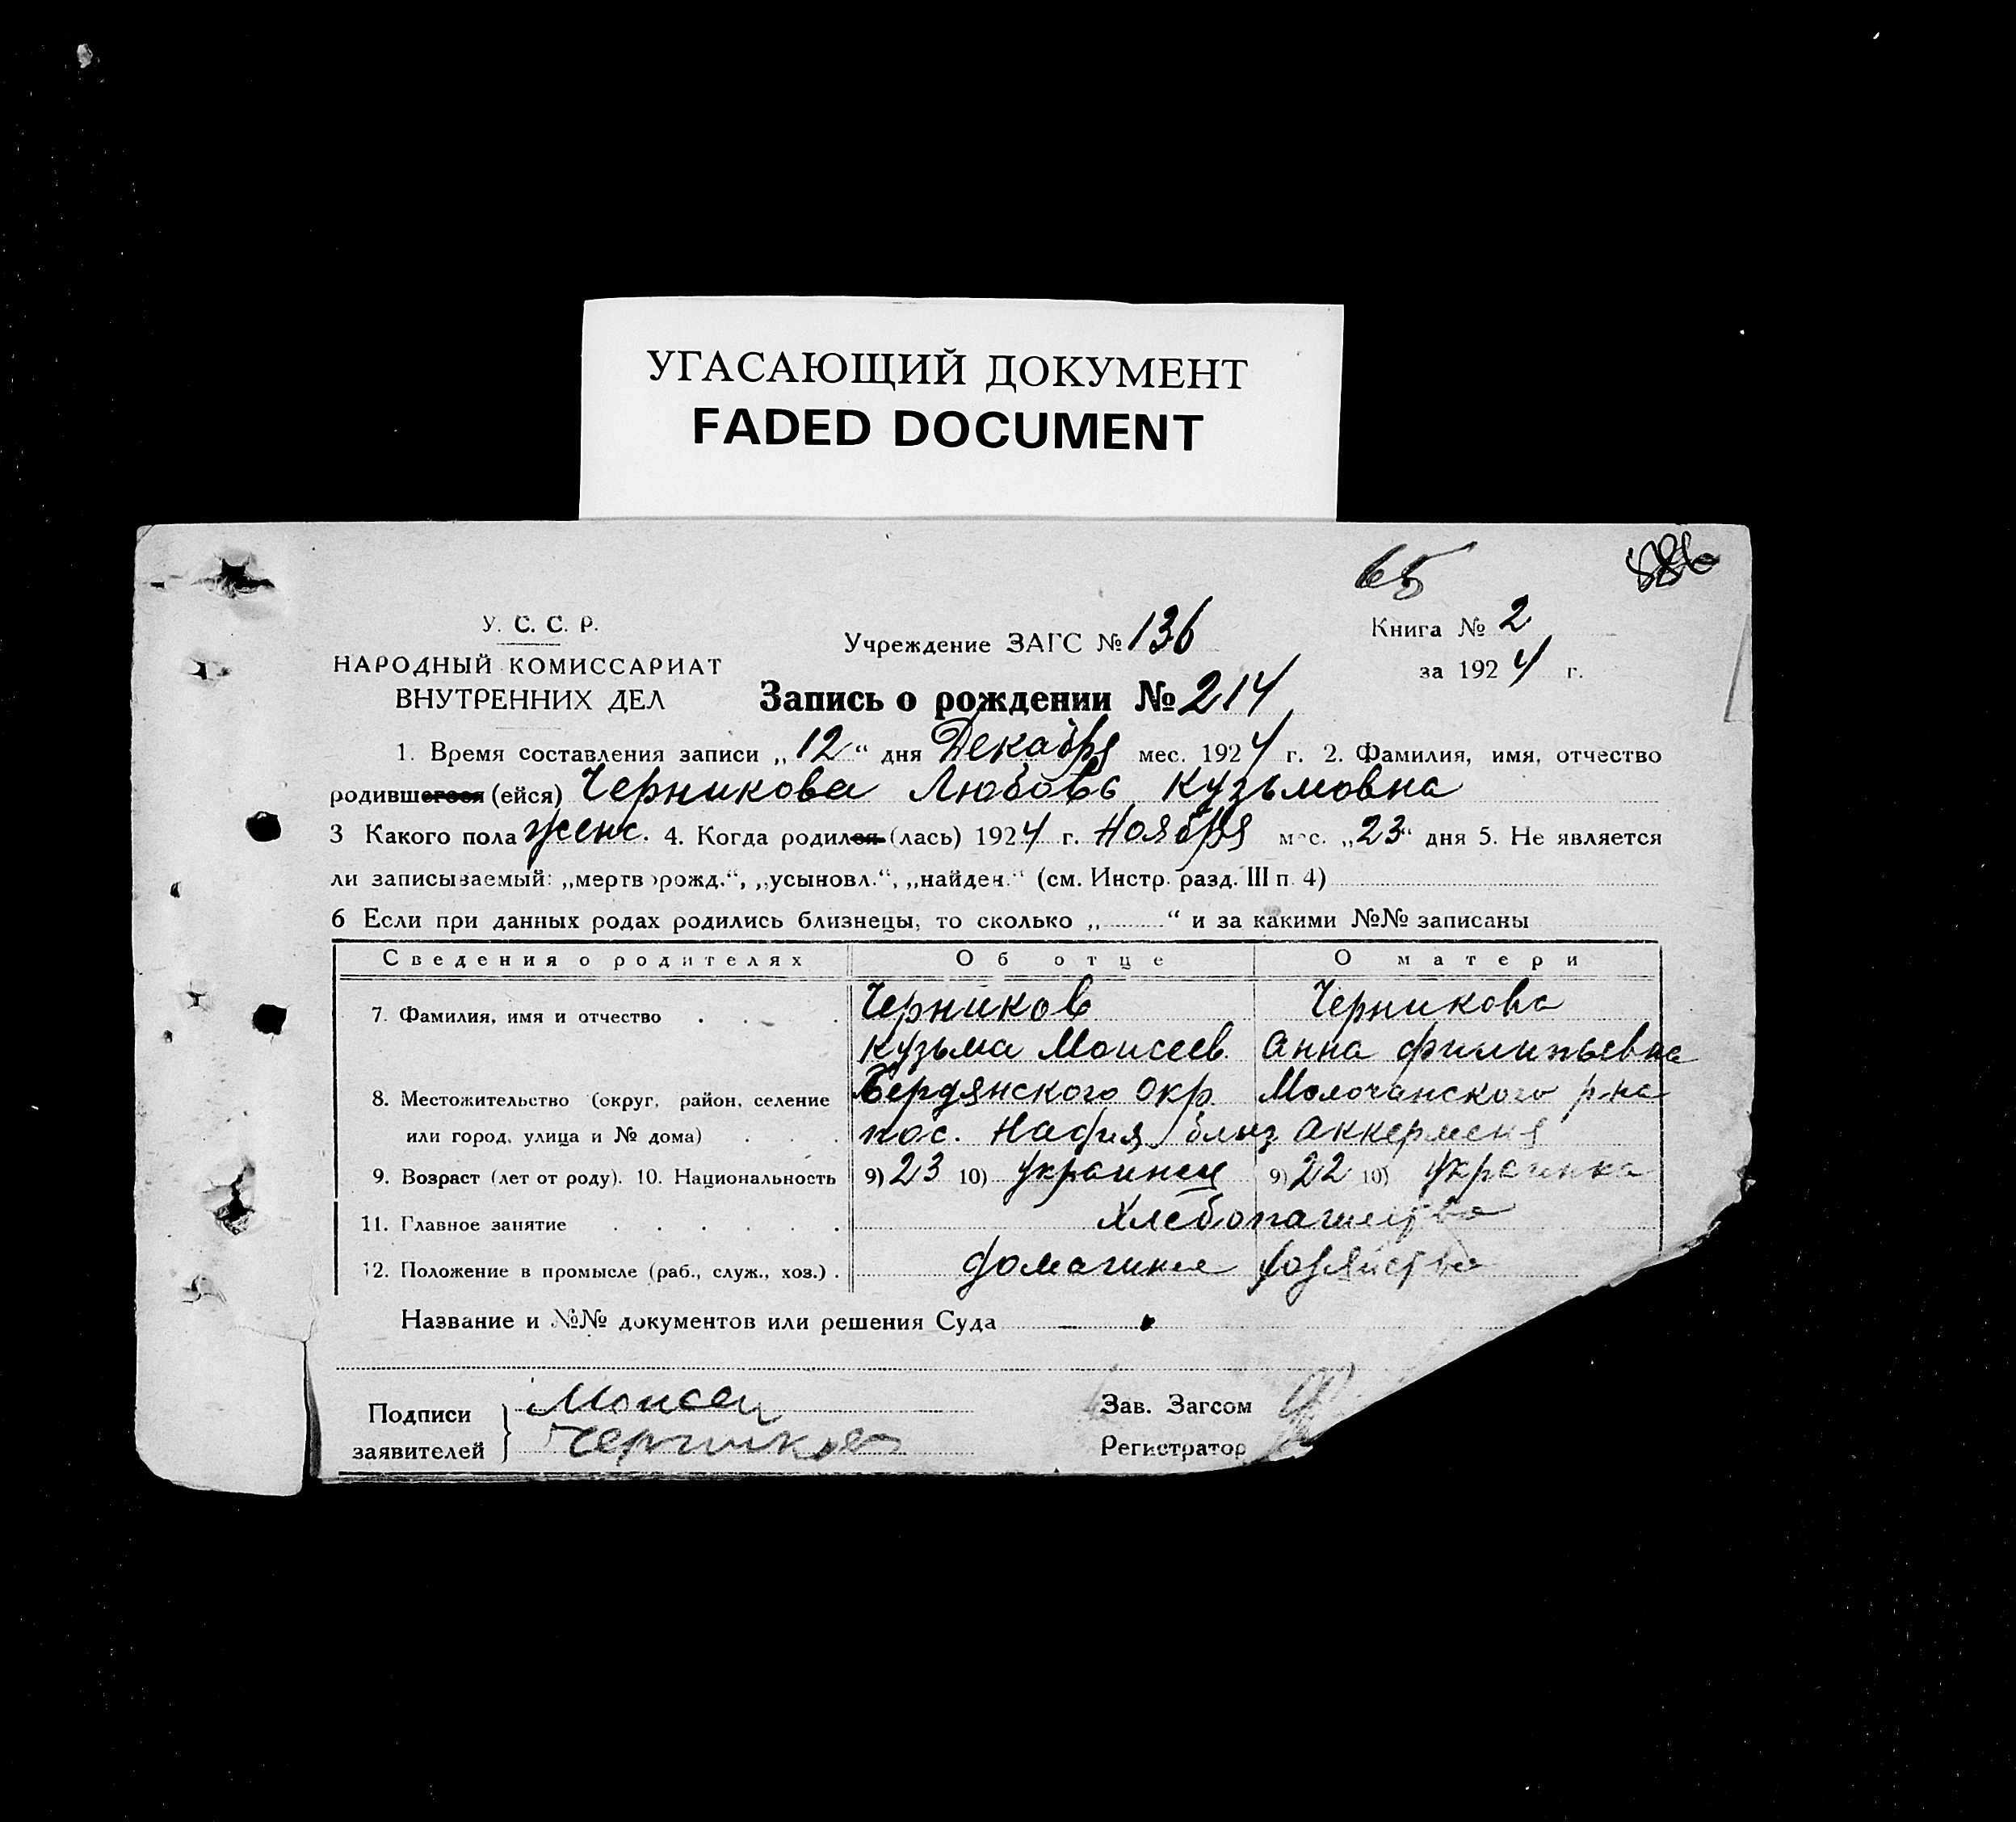 УГАСАЮЩИЙ ДОКУМЕНТ
FADED DOCUMENT
65
У. С. С. Р.
НАРОДНЫЙ КОМИССАРИАТ
ВНУТРЕННИХ ДЕЛ
Учреждение ЗАГС № 136
Книга № 2
за 1924 г.
Запись о рождении № 214
1. Время составления записи „12“ дня Декабря мес. 1924 г. 2. Фамилия, имя, отчество
родившегося (ейся) Черникова Любовь Кузьмовна
3 Какого пола женс. 4. Когда родился (лась) 1924 г. Ноября мес. „23“ дня 5. Не является
ли записываемый: „мертворожд.“, „усыновл.“, „найден.“ (см. Инстр. разд. III п. 4)
6 Если при данных родах родились близнецы, то сколько „ “ и за какими №№ записаны
Сведения о родителях Об отце О матери
7. Фамилия, имя и отчество Черников Черникова
Кузьма Моисеев. Анна Филипьевна
8. Местожительство (округ, район, селение Бердянского Окр. Молочанского р-на
или город, улица и № дома) пос. близ Аккерменя
9. Возраст (лет от роду). 10. Национальность 9) 23 10) украинец 9) 22 10) украинка
11. Главное занятие Хлебопашество
12. Положение в промысле (раб., служ., хоз.) домашнее хозяйство
Название и №№ документов или решения Суда —
Подписи Моисей
заявителей Черников
Зав. Загсом
Регистратор